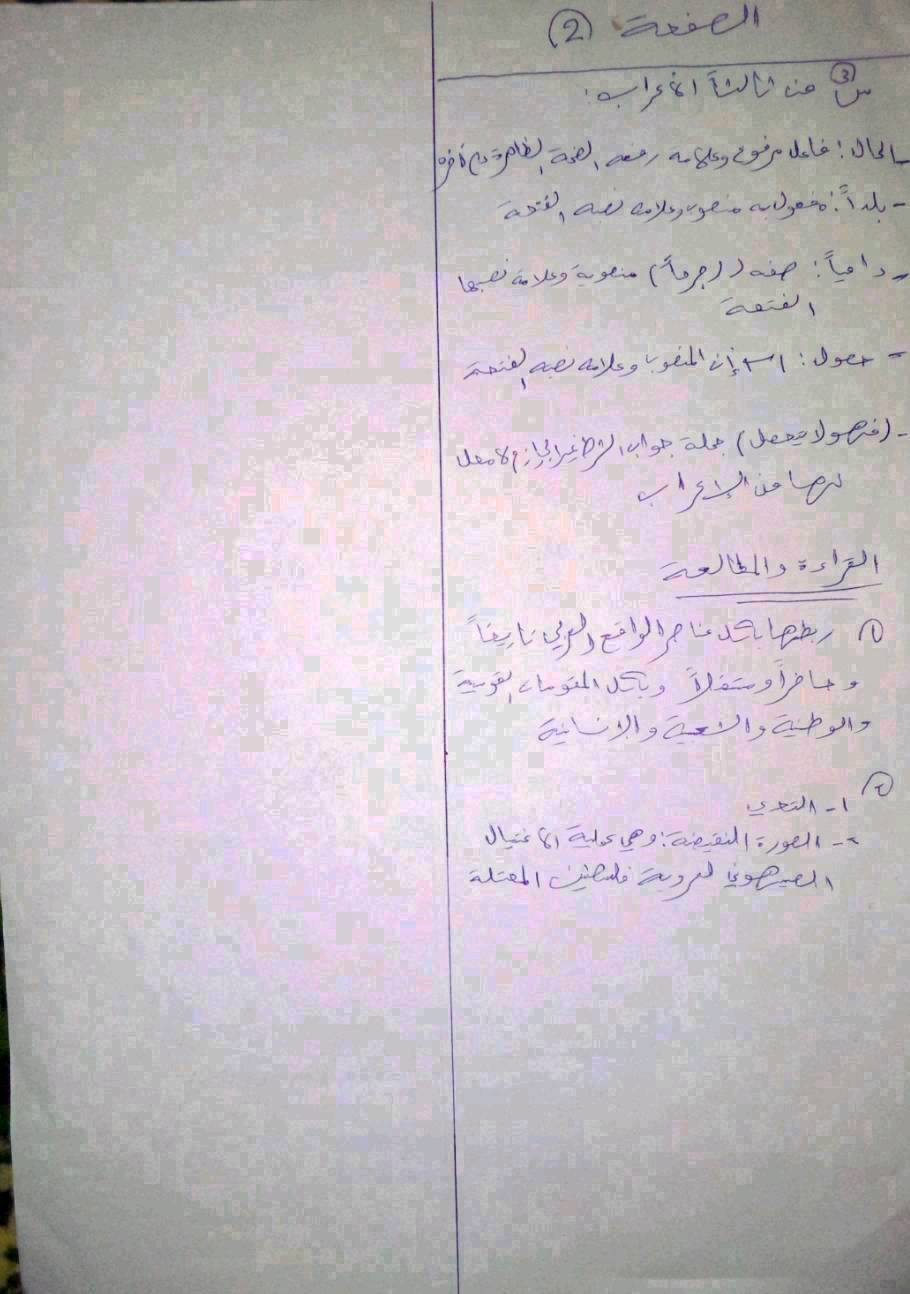 الصفحة (2)
س (3) من ثالثاً الأعراب:
- الحال: فاعل مرفوع وعلامة رفعه الضمة الظاهرة على آخره
- بلداً: مفعول به منصوب وعلامة نصبه الفتحة
- دامياً: صفة لـ (جرحاً) منصوبة وعلامة نصبها
الفتحة
- حصول: اسم إن المنصوب وعلامة نصبه الفتحة
- (فهو لا يحفل) جملة جواب الشرط غير الجازم لا محل
لها من الإعراب
القراءة والمطالعة
1) ربطها بكل عناصر الواقع العربي تاريخاً
وحاضراً ومستقبلاً وبكل المقومات القومية
والوطنية والشعبية والإنسانية
2) 1- التحدي
2- الصورة النقيضة: وهي عملية الاغتيال
الصهيوني لعروبة فلسطين المحتلة